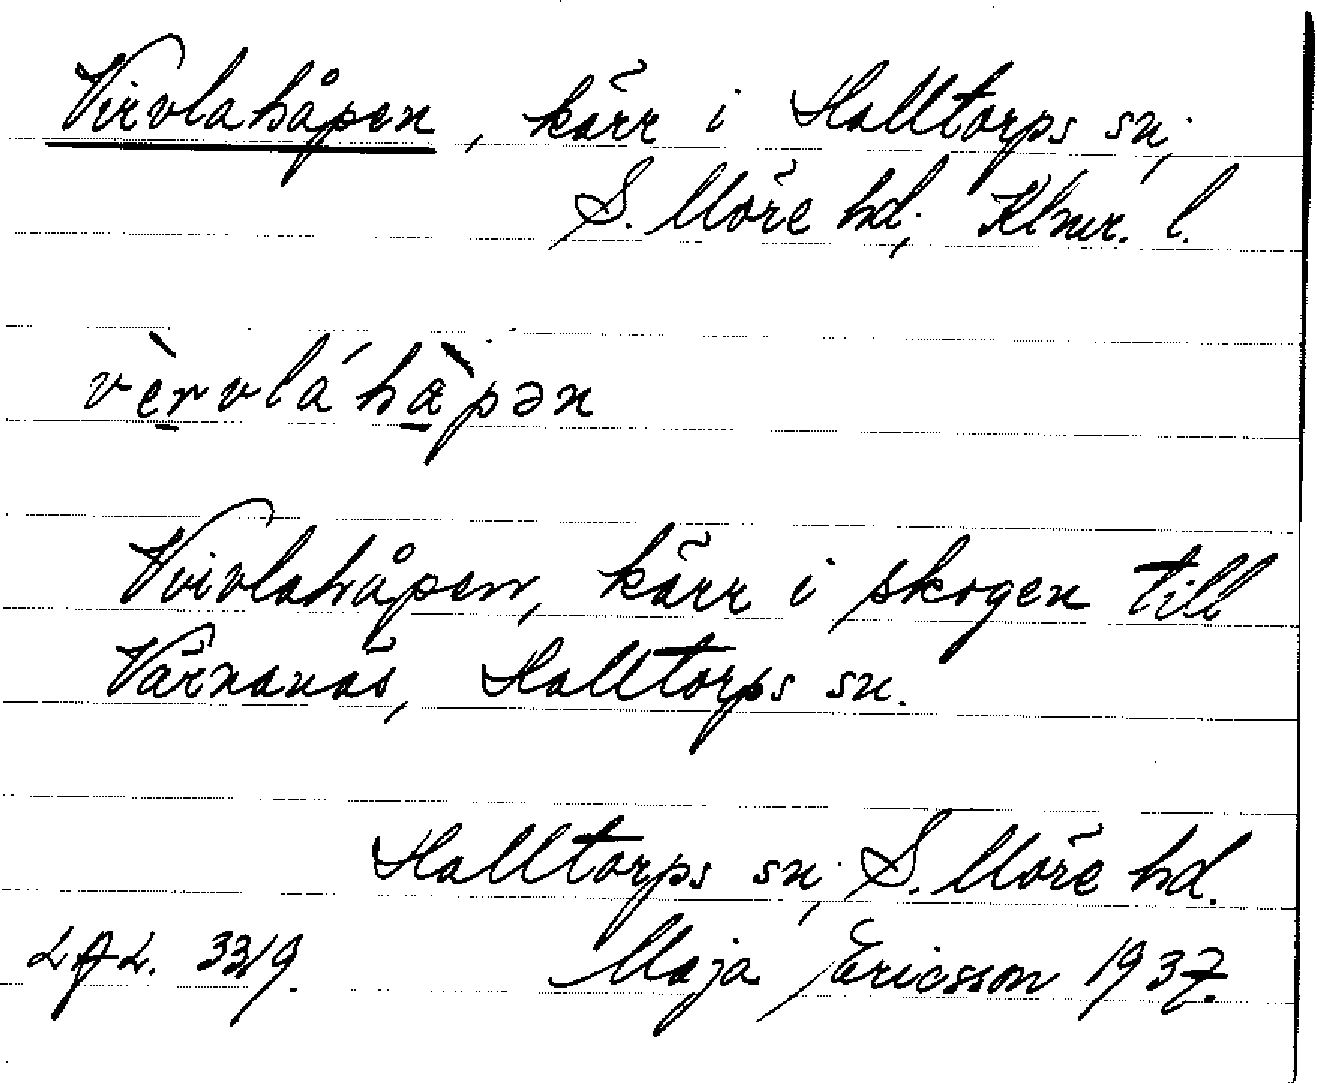 Virvlahåpen, kärr i Halltorps sn,
S. Möre hd, Klmr. l.
vèrvláhàpən
Virvlahåpen, kärr i skogen till
Värnanäs, Halltorps sn.
Halltorps sn, S. Möre hd.
3319. Maja Ericsson 1937.